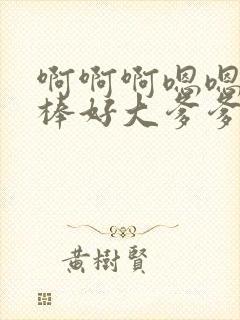 啊啊啊嗯嗯
棒好大爹爹
黄樹賢